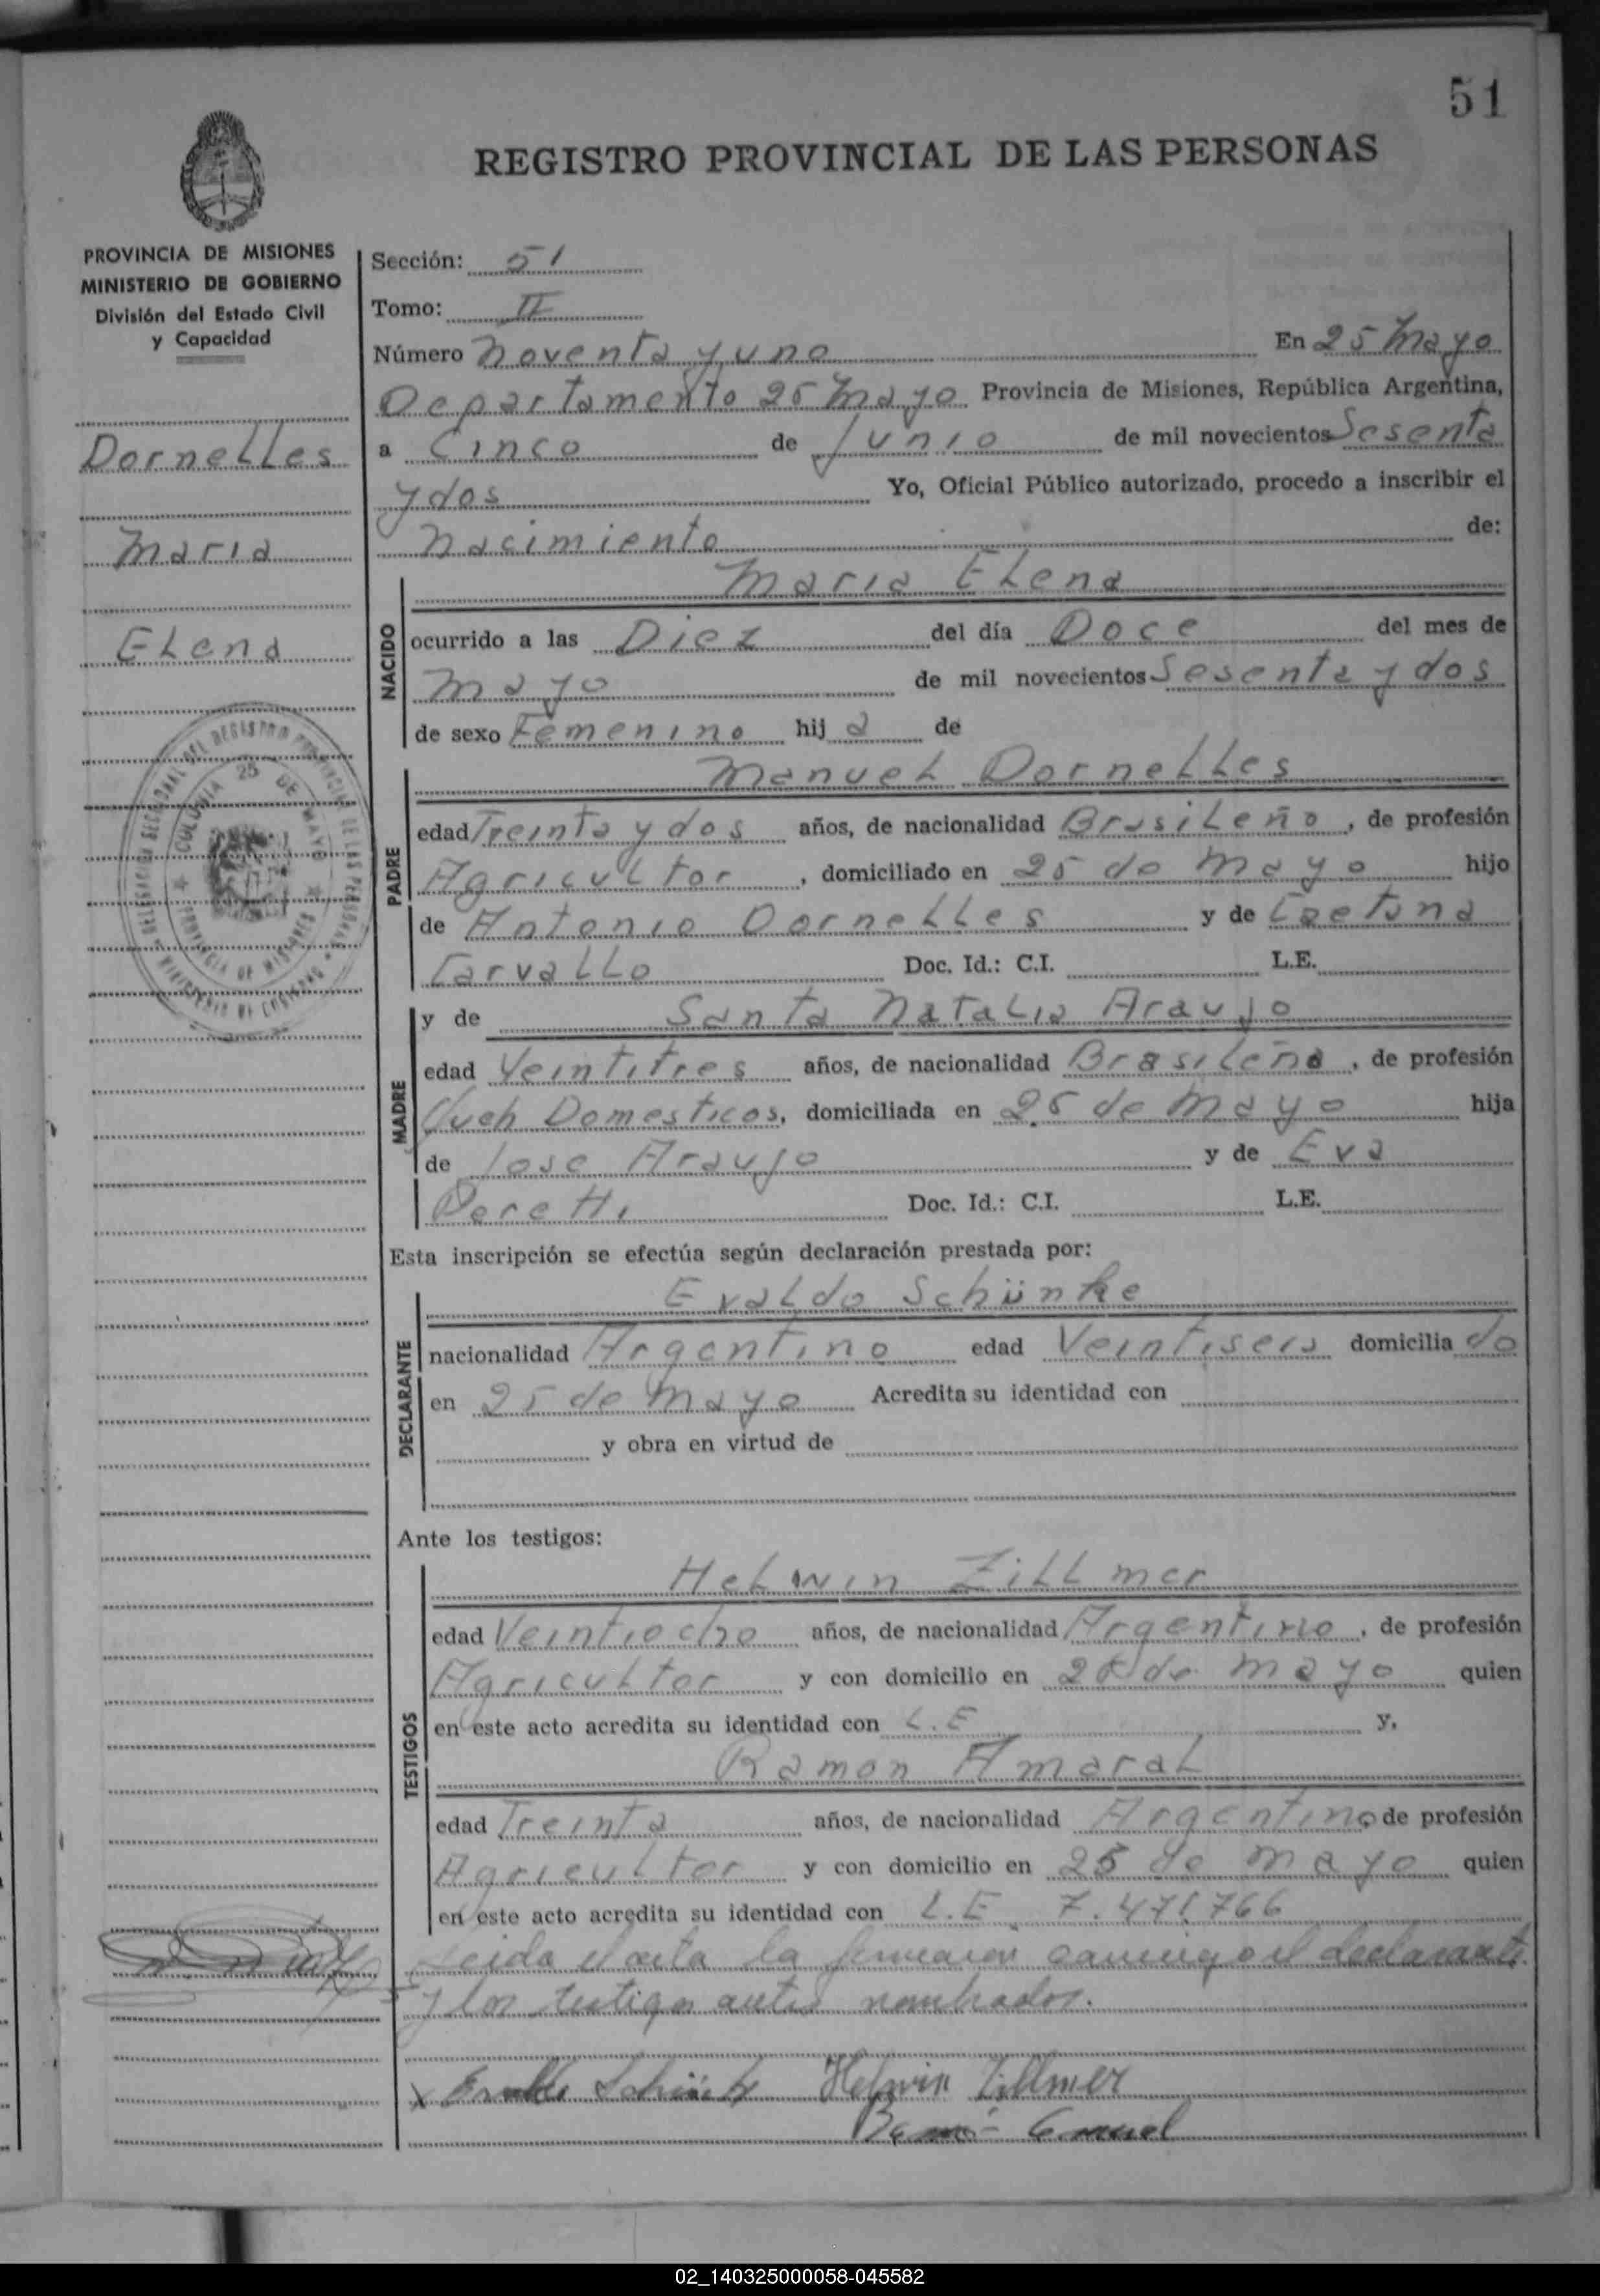 51
REGISTRO PROVINCIAL DE LAS PERSONAS
PROVINCIA DE MISIONES
MINISTERIO DE GOBIERNO
División del Estado Civil
y Capacidad
Dornelles
Maria
Elena
DELEGACION SECCIONAL DEL REGISTRO PROVINCIAL DE LAS PERSONAS
MINISTERIO DE GOBIERNO
COLONIA 25 DE MAYO
PROVINCIA DE MISIONES
Sección: 51
Tomo: II
Número Noventa y uno En 25 Mayo
Departamento 25 Mayo Provincia de Misiones, República Argentina,
a Cinco de Junio de mil novecientos Sesenta
y dos Yo, Oficial Público autorizado, procedo a inscribir el
Nacimiento de:
NACIDO
Maria Elena
ocurrido a las Diez del día Doce del mes de
Mayo de mil novecientos Sesenta y dos
de sexo Femenino hij a de
PADRE
Manuel Dornelles
edad Treinta y dos años, de nacionalidad Brasileño, de profesión
Agricultor, domiciliado en 25 de Mayo hijo
de Antonio Dornelles y de Caetana
Carvallo Doc. Id.: C.I. L.E.
MADRE
y de Santa Natalia Araujo
edad Veintitres años, de nacionalidad Brasileña, de profesión
Queh Domesticos, domiciliada en 25 de Mayo hija
de Jose Araujo y de Eva
Peretti Doc. Id.: C.I. L.E.
Esta inscripción se efectúa según declaración prestada por:
DECLARANTE
Evaldo Schünke
nacionalidad Argentino edad Veintiseis domicilia do
en 25 de Mayo Acredita su identidad con
y obra en virtud de
Ante los testigos:
TESTIGOS
Helwin Zillmer
edad Veintiocho años, de nacionalidad Argentino, de profesión
Agricultor y con domicilio en 25 de Mayo quien
en este acto acredita su identidad con L.E y,
Ramon Amaral
edad Treinta años, de nacionalidad Argentino de profesión
Agricultor y con domicilio en 25 de Mayo quien
en este acto acredita su identidad con L.E 7.471.766
Leida el acta la firmaron conmigo el declarante
y los testigos antes nombrados.
Helwin Zillmer
02_140325000058-045582